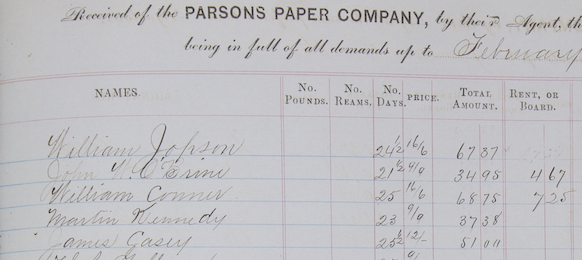 Received of the PARSONS PAPER COMPANY, by their Agent, th
being in full of all demands up to February
NAMES. No. POUNDS. No. REAMS. No. DAYS. PRICE. TOTAL AMOUNT. RENT, OR BOARD.
William Jopson 24½ 16/6 67 37
John 21½ 9/0 34 95 4 67
William Conner 25 16/6 68 75 7 25
Martin Kennedy 23 9/0 37 38
James Casey 25½ 12/- 51 01